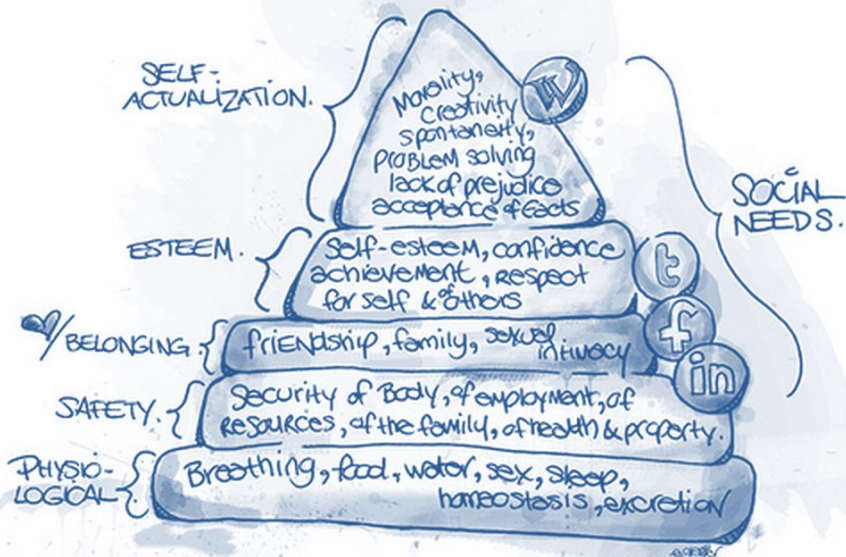 SELF-
ACTUALIZATION.
Morality,
Creativity
spontaneity,
PROBLEM solving
lack of prejudice
acceptance of facts
W
SOCIAL
NEEDS.
ESTEEM.
Self-esteem, confidence
achievement, respect
for self & of others
t
/BELONGING.
friendship, family, sexual
intimacy
f
in
SAFETY.
Security of Body, of employment, of
resources, of the family, of health & property.
PHYSIO-
LOGICAL
Breathing, food, water, sex, sleep,
homeostasis, excretion